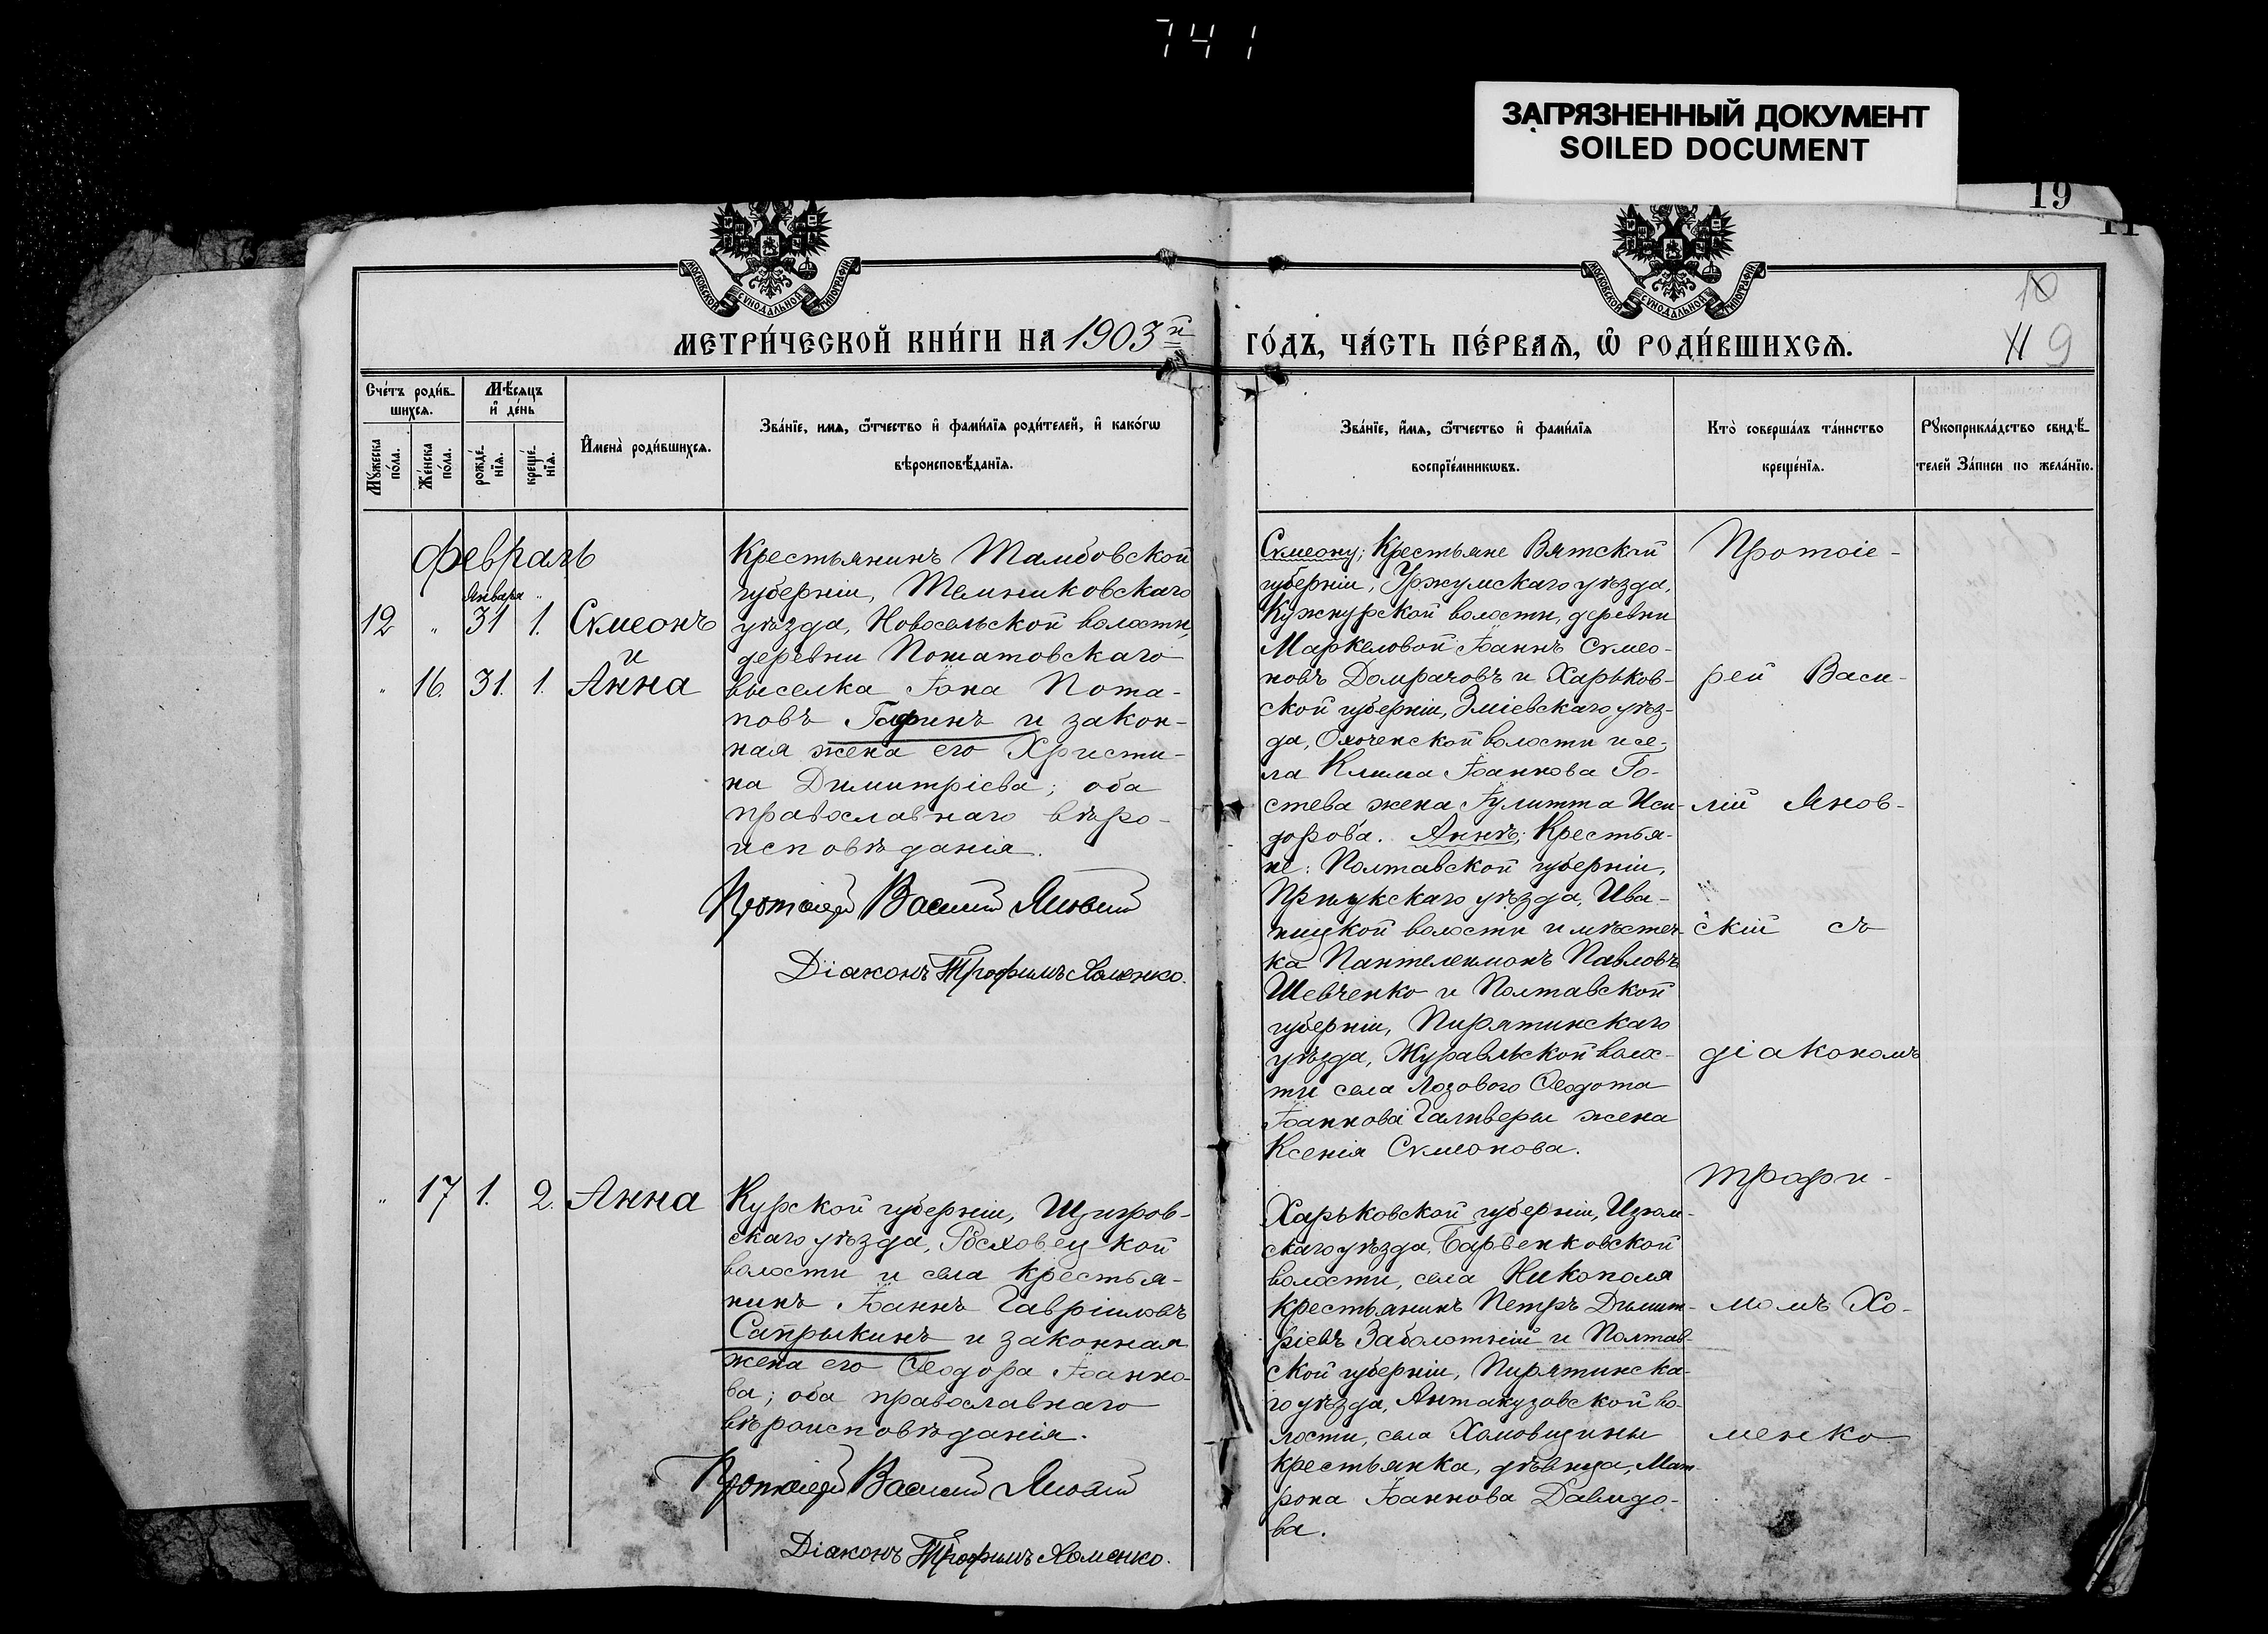 741
ЗАГРЯЗНЕННЫЙ ДОКУМЕНТ
SOILED DOCUMENT
19
11
10
11 9
МОСКОВСКОЙ СѴНОДАЛЬНОЙ ТИПОГРАФІИ
МОСКОВСКОЙ СѴНОДАЛЬНОЙ ТИПОГРАФІИ
МЕТРИ́ЧЕСКОЙ КНИ́ГИ НА 1903й
ГО́ДЪ, ЧА́СТЬ ПЕ́РВАѦ, Ѡ҆ РОДИ́ВШИХСѦ.
Сче́тъ роди́в-
шихсѧ.
Мꙋжеска по́ла.
Же́нска по́ла.
Мѣ́сѧцъ
и҆ де́нь
рожде́-
нїѧ.
креще́-
нїѧ.
И҆мена̀ роди́вшихсѧ.
Зва́нїе, имѧ, ѻ҆́тчество и҆ фами́лїѧ роди́телей, и҆ како́гѡ
вѣроисповѣ́данїѧ.
Зва́нїе, и҆́мѧ, ѻ҆́тчество и҆ фами́лїѧ
воспрїе́мникѡвъ.
Кто̀ соверша́лъ та́инство
креще́нїѧ.
Рꙋкоприкла́дство свидѣ́-
телей за́писи по жела́нїю.
Февраль
Января „
12 „ 31 1. Сѵмеонъ
и
„ 16. 31. 1. Анна
Крестьянинъ Тамбовской
губерніи, Темниковскаго
уѣзда, Новосельской волости,
деревни Потатовскаго
выселка Іона Пота-
повъ Гаринъ и закон-
ная жена его Христи-
на Димитріева; оба
православнаго вѣро-
исповѣданія.
Протоіерей Василій Яновскій
Діаконъ Трофимъ Хоменко.
Сѵмеону; Крестьяне Вятской
губерніи, Уржумскаго уѣзда,
Кужнурской волости, деревни
Маркеловой Іоаннъ Сѵмео-
новъ Домрачовъ и Харьков-
ской губерніи, Зміевскаго уѣз-
да, Охоченской волости и се-
ла Клима Іоаннова Го-
стева жена Іулитта Иси-
дорова. Аннѣ; Крестья-
не: Полтавской губерніи,
Прилукскаго уѣзда, Ива-
ницкой волости и мѣстеч-
ка Пантелеимонъ Павловъ
Шевченко и Полтавской
губерніи, Пирятинскаго
уѣзда, Журавльской волос-
ти села Лозового Ѳеодота
Іоаннова Галиверы жена
Ксенія Сѵмеонова.
Протоіе-
рей Васи-
лій Янов-
скій съ
діакономъ
Трофи-
момъ Хо-
менко
„ 17 1. 2. Анна
Курской губерніи, Щигров-
скаго уѣзда, Росховецкой
волости и села крестья-
нинъ Іоаннъ Гавріиловъ
Сапрыкинъ и законная
жена его Ѳеодора Іоанно-
ва; оба православнаго
вѣроисповѣданія.
Протоіерей Василій Яновскій
Діаконъ Трофимъ Хоменко.
Харьковской губерніи, Изюм-
скаго уѣзда, Барвенковской
волости, села Никополя
крестьянинъ Петръ Димит-
ріевъ Заболотній и Полтав-
ской губерніи, Пирятинска-
го уѣзда, Антакузовской во-
лости, села Хомовщины
крестьянка, дѣвица, Мат-
рона Іоаннова Давидо-
ва.